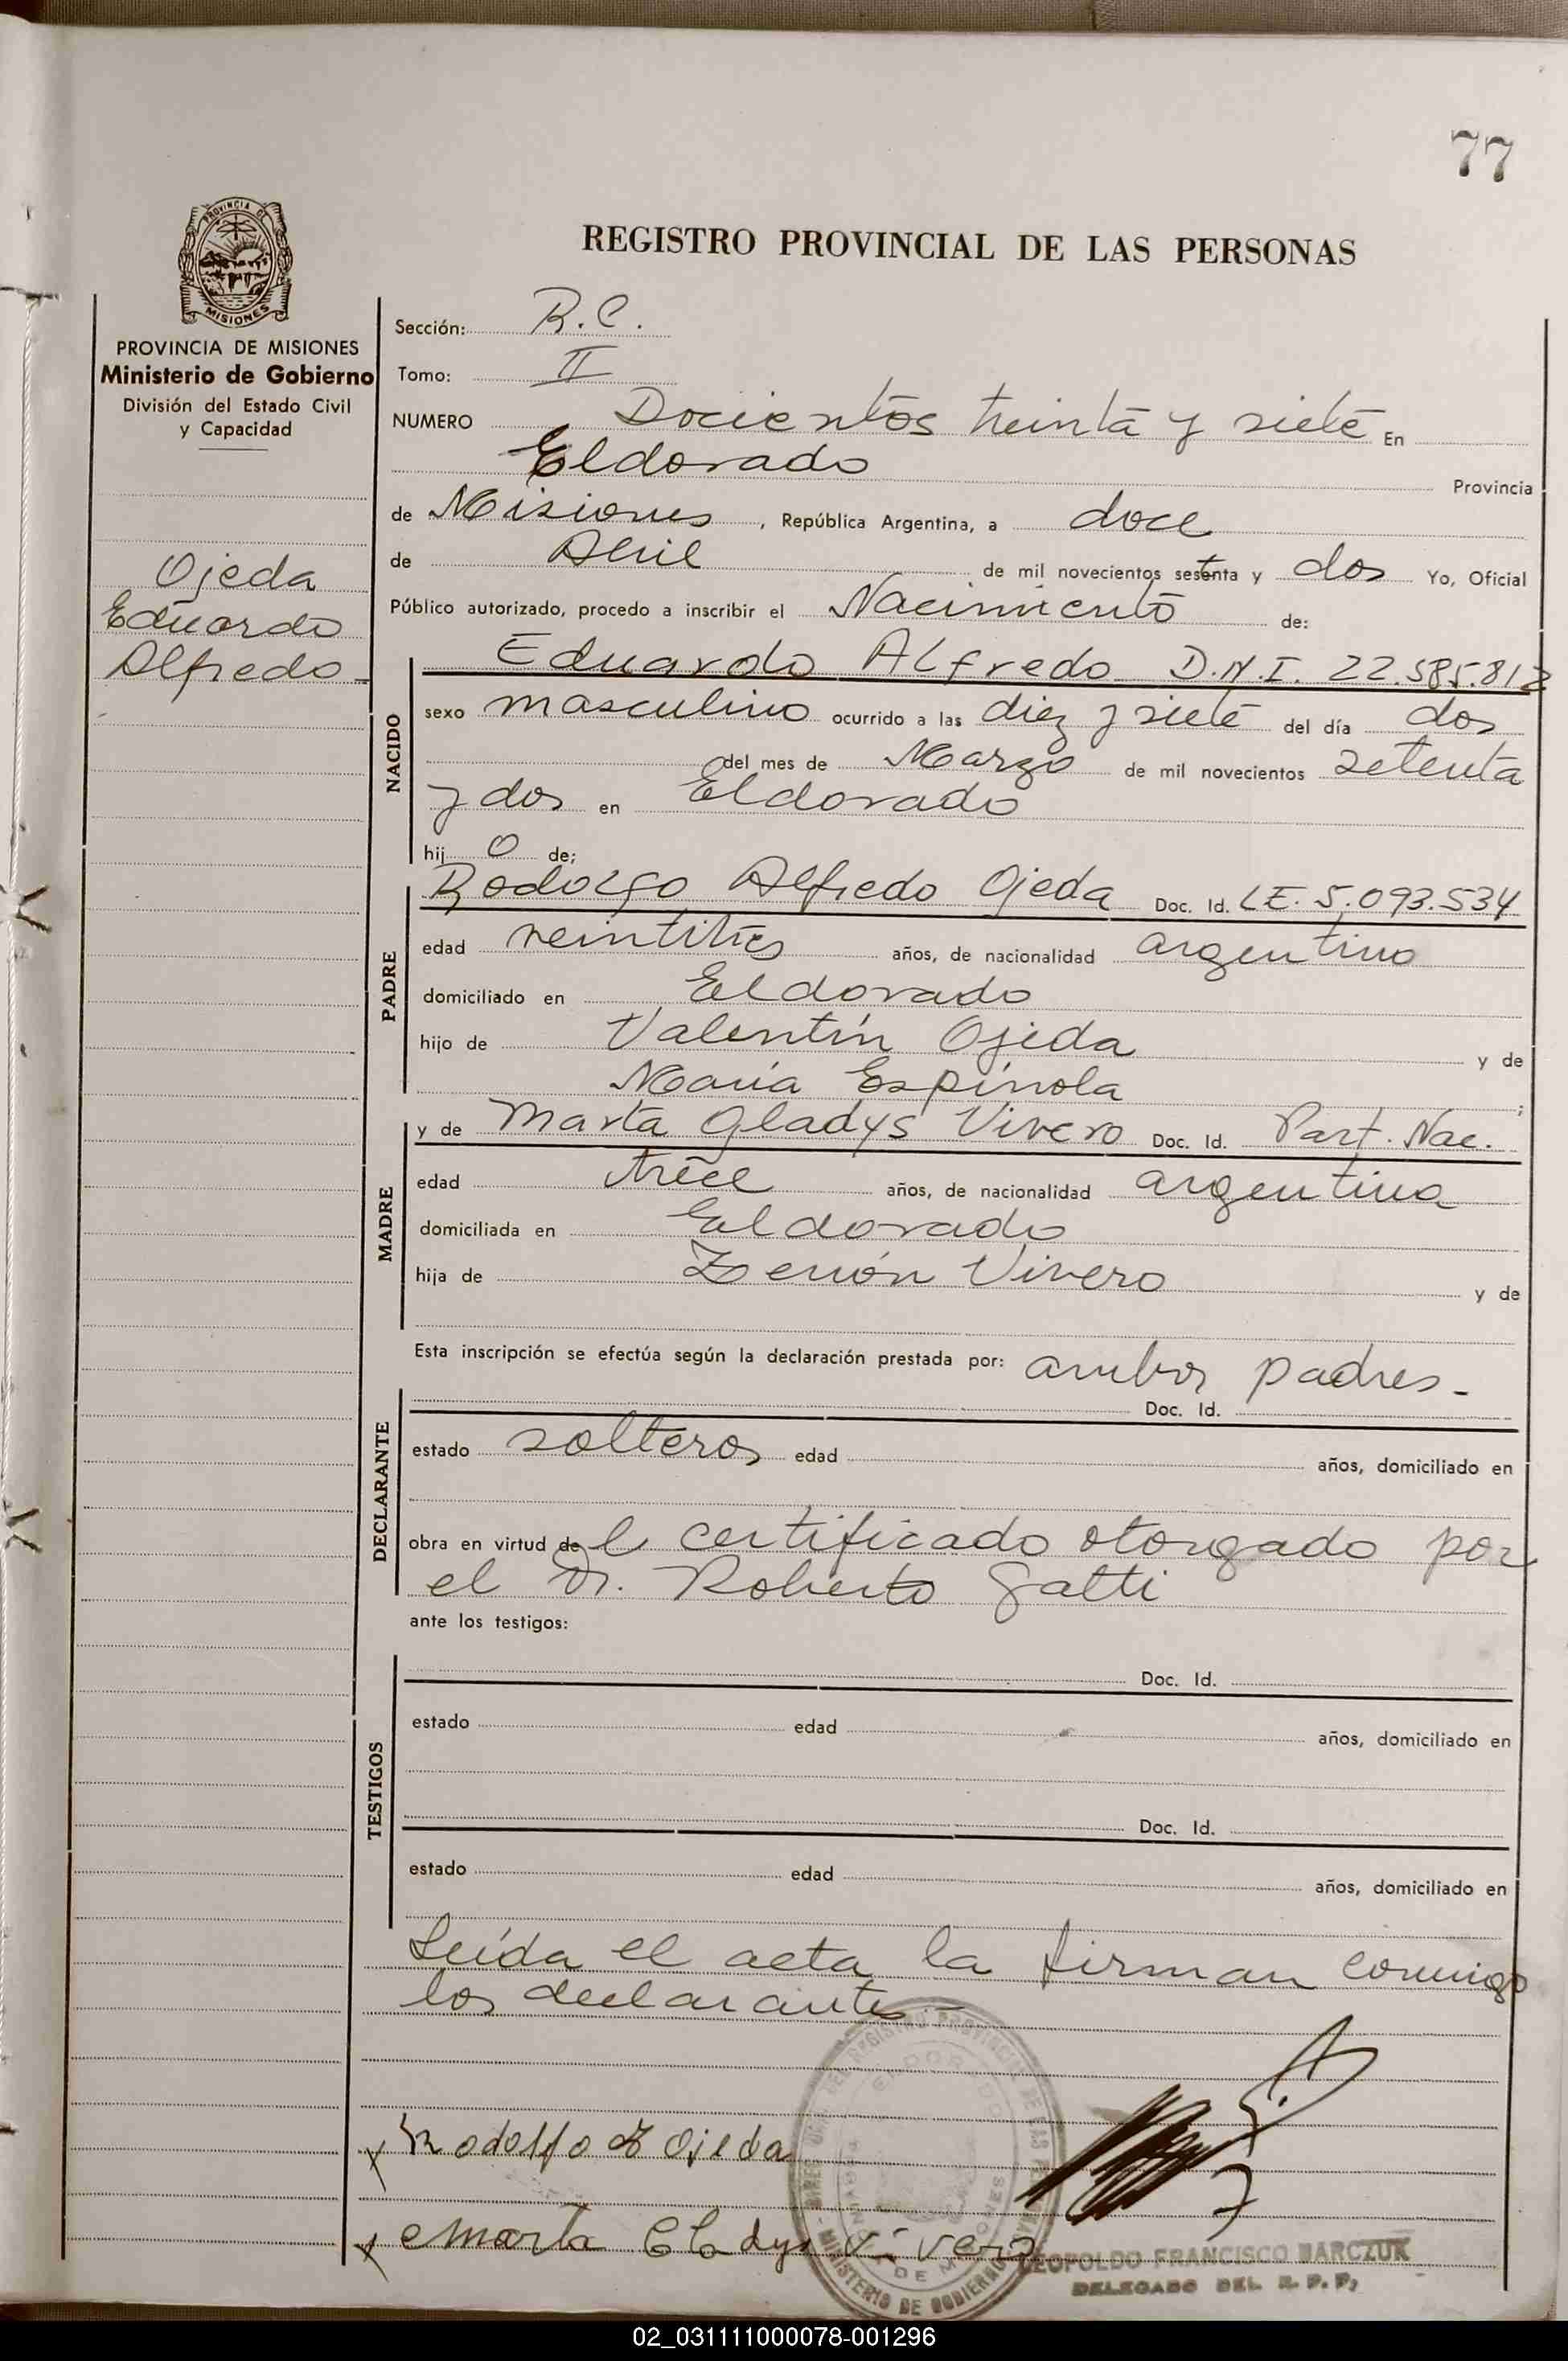 77
PROVINCIA DE
MISIONES
REGISTRO PROVINCIAL DE LAS PERSONAS
PROVINCIA DE MISIONES
Ministerio de Gobierno
División del Estado Civil
y Capacidad
Ojeda
Eduardo
Alfredo
Sección: R.C.
Tomo: II
NUMERO Docientos treinta y siete En
Eldorado Provincia
de Misiones, República Argentina, a doce
de Abril de mil novecientos setenta y dos Yo, Oficial
Público autorizado, procedo a inscribir el Nacimiento de:
NACIDO
Eduardo Alfredo D.N.I. 22.585.812
sexo masculino ocurrido a las diez y siete del día dos
del mes de Marzo de mil novecientos setenta
y dos en Eldorado
hij o de;
PADRE
Rodolfo Alfredo Ojeda Doc. Id. LE. 5.093.534
edad veintitrés años, de nacionalidad argentino
domiciliado en Eldorado
hijo de Valentín Ojeda y de
María Espínola ;
MADRE
y de Marta Gladys Vivero Doc. Id. Part. Nac.
edad trece años, de nacionalidad argentina
domiciliada en Eldorado
hija de Zenón Vivero y de
Esta inscripción se efectúa según la declaración prestada por: ambos padres-
DECLARANTE
Doc. Id.
estado solteros edad años, domiciliado en
obra en virtud de l certificado otorgado por
el Dr. Roberto Gatti
ante los testigos:
TESTIGOS
Doc. Id.
estado edad años, domiciliado en
Doc. Id.
estado edad años, domiciliado en
Leída el acta la firman conmigo
los declarantes.-
x Rodolfo A Ojeda
x Marta Gladys Vivero
REGISTRO PROVINCIAL DE LAS
MINISTERIO DE GOBIERNO
LEOPOLDO FRANCISCO MARCZUK
DELEGADO DEL R. P. P.
02_031111000078-001296